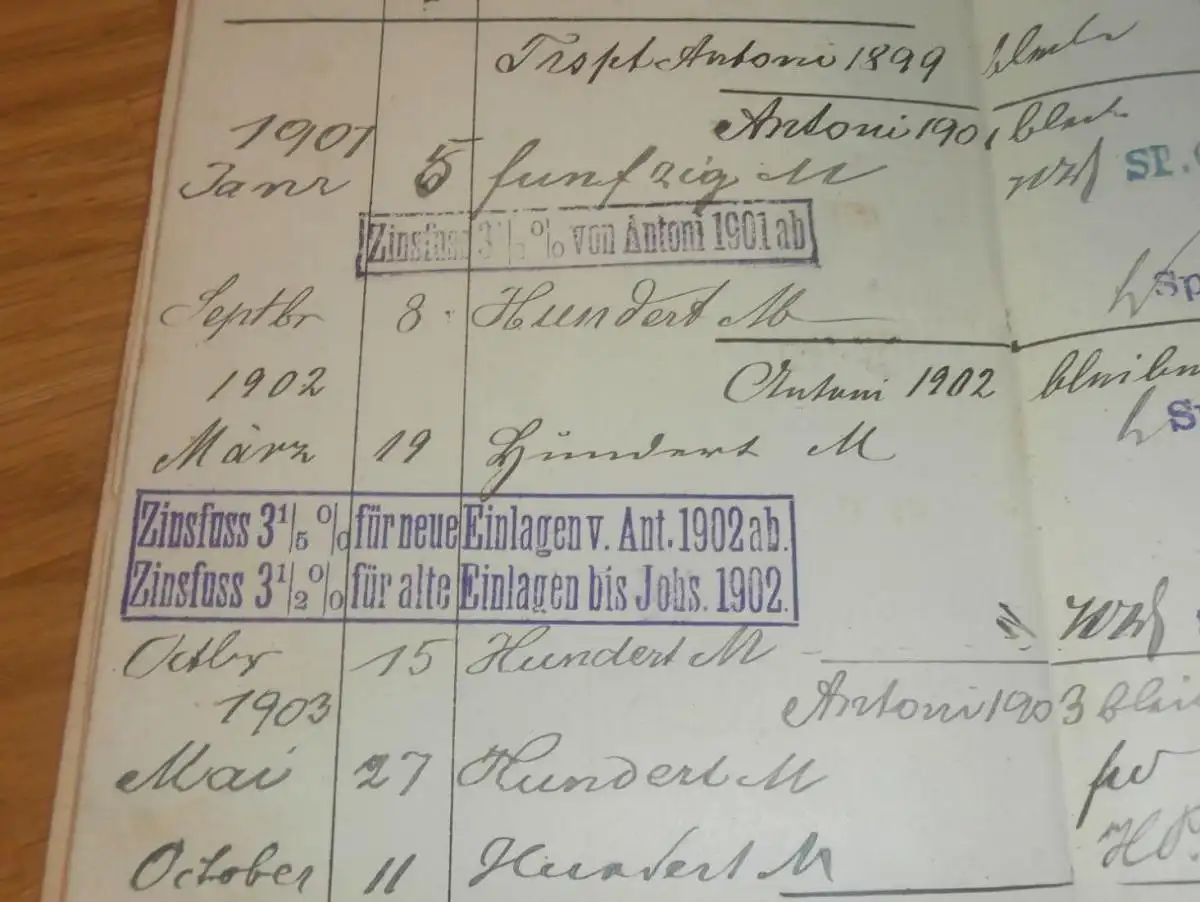 Trspt Antoni 1899 bleibn
Antoni 1901 bleib
1901
Janr 5 funfzig M
SP.
Zinsfuss 3 1/2 % von Antoni 1901 ab
Septbr 8 Hundert M
Sp
1902 Antoni 1902 bleiben
März 19 Hundert M
Zinsfuss 3 1/5 % für neue Einlagen v. Ant. 1902 ab.
Zinsfuss 3 1/2 % für alte Einlagen bis Johs. 1902.
Octbr 15 Hundert M
1903 Antoni 1903 blei
Mai 27 Hundert M
October 11 Hundert M